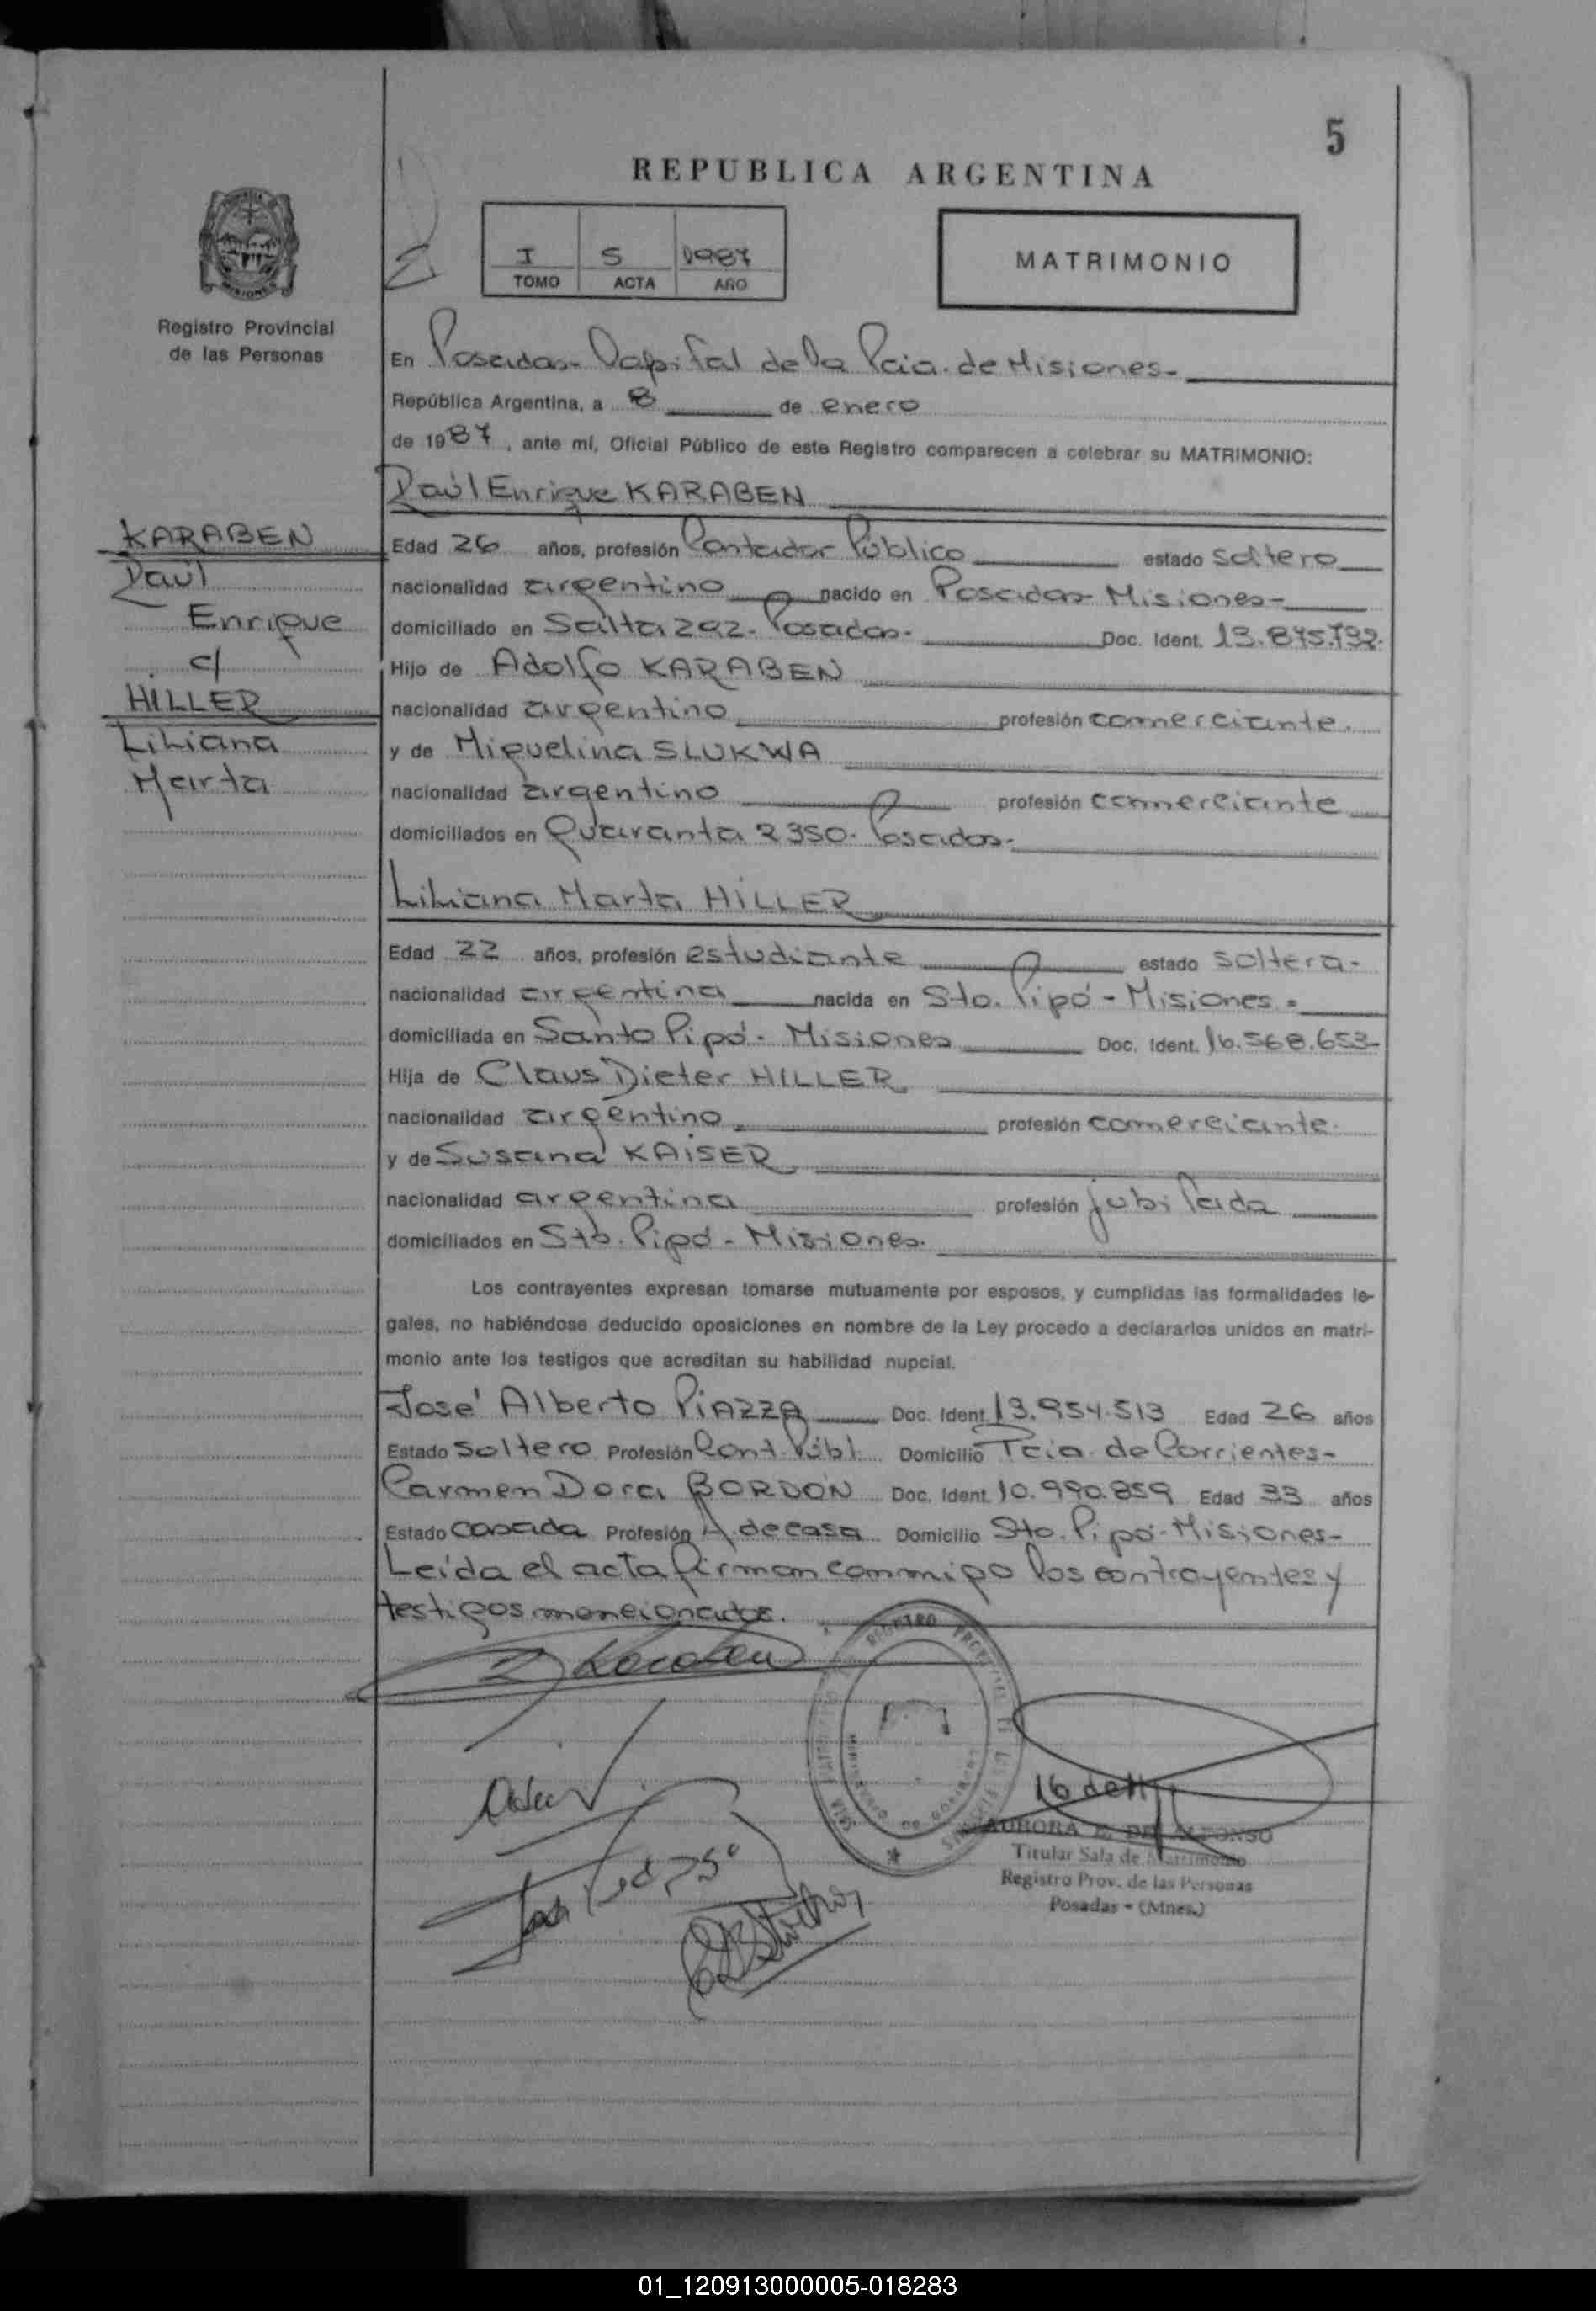 5
REPUBLICA ARGENTINA
I 5 1987
TOMO ACTA AÑO
MATRIMONIO
MISIONES
Registro Provincial
de las Personas
En Posadas- Capital de la Pcia. de Misiones-
República Argentina, a 8 de enero
de 1987, ante mí, Oficial Público de este Registro comparecen a celebrar su MATRIMONIO:
Raúl Enrique KARABEN
KARABEN
Raúl
Enrique
c/
HILLER
Liliana
Marta
Edad 26 años, profesión Contador Público estado soltero
nacionalidad argentino nacido en Posadas- Misiones-
domiciliado en Salta 292- Posadas- Doc. Ident. 13.875.792.
Hijo de Adolfo KARABEN
nacionalidad argentino profesión comerciante.
y de Miguelina SLUKWA
nacionalidad argentino profesión comerciante
domiciliados en Quaranta 2350- Posadas-
Liliana Marta HILLER
Edad 22 años, profesión estudiante estado soltera-
nacionalidad argentina nacida en Sto. Pipó - Misiones.-
domiciliada en Santo Pipó- Misiones Doc. Ident. 16.568.653-
Hija de Claus Dieter HILLER
nacionalidad argentino profesión comerciante.
y de Susana KAISER
nacionalidad argentina profesión jubilada
domiciliados en Sto. Pipó - Misiones.
Los contrayentes expresan tomarse mutuamente por esposos, y cumplidas las formalidades le-
gales, no habiéndose deducido oposiciones en nombre de la Ley procedo a declararlos unidos en matri-
monio ante los testigos que acreditan su habilidad nupcial.
José Alberto PIAZZA Doc. Ident. 13.954.513 Edad 26 años
Estado soltero Profesión Cont. Públ. Domicilio Pcia. de Corrientes-
Carmen Dora BORDÓN Doc. Ident. 10.990.859 Edad 33 años
Estado casada Profesión A de casa Domicilio Sto. Pipó-Misiones-
Leída el acta firman conmigo los contrayentes y
testigos mencionados.
AURORA E. DE ALFONSO
Titular Sala de Matrimonio
Registro Prov. de las Personas
Posadas - (Mnes.)
01_120913000005-018283